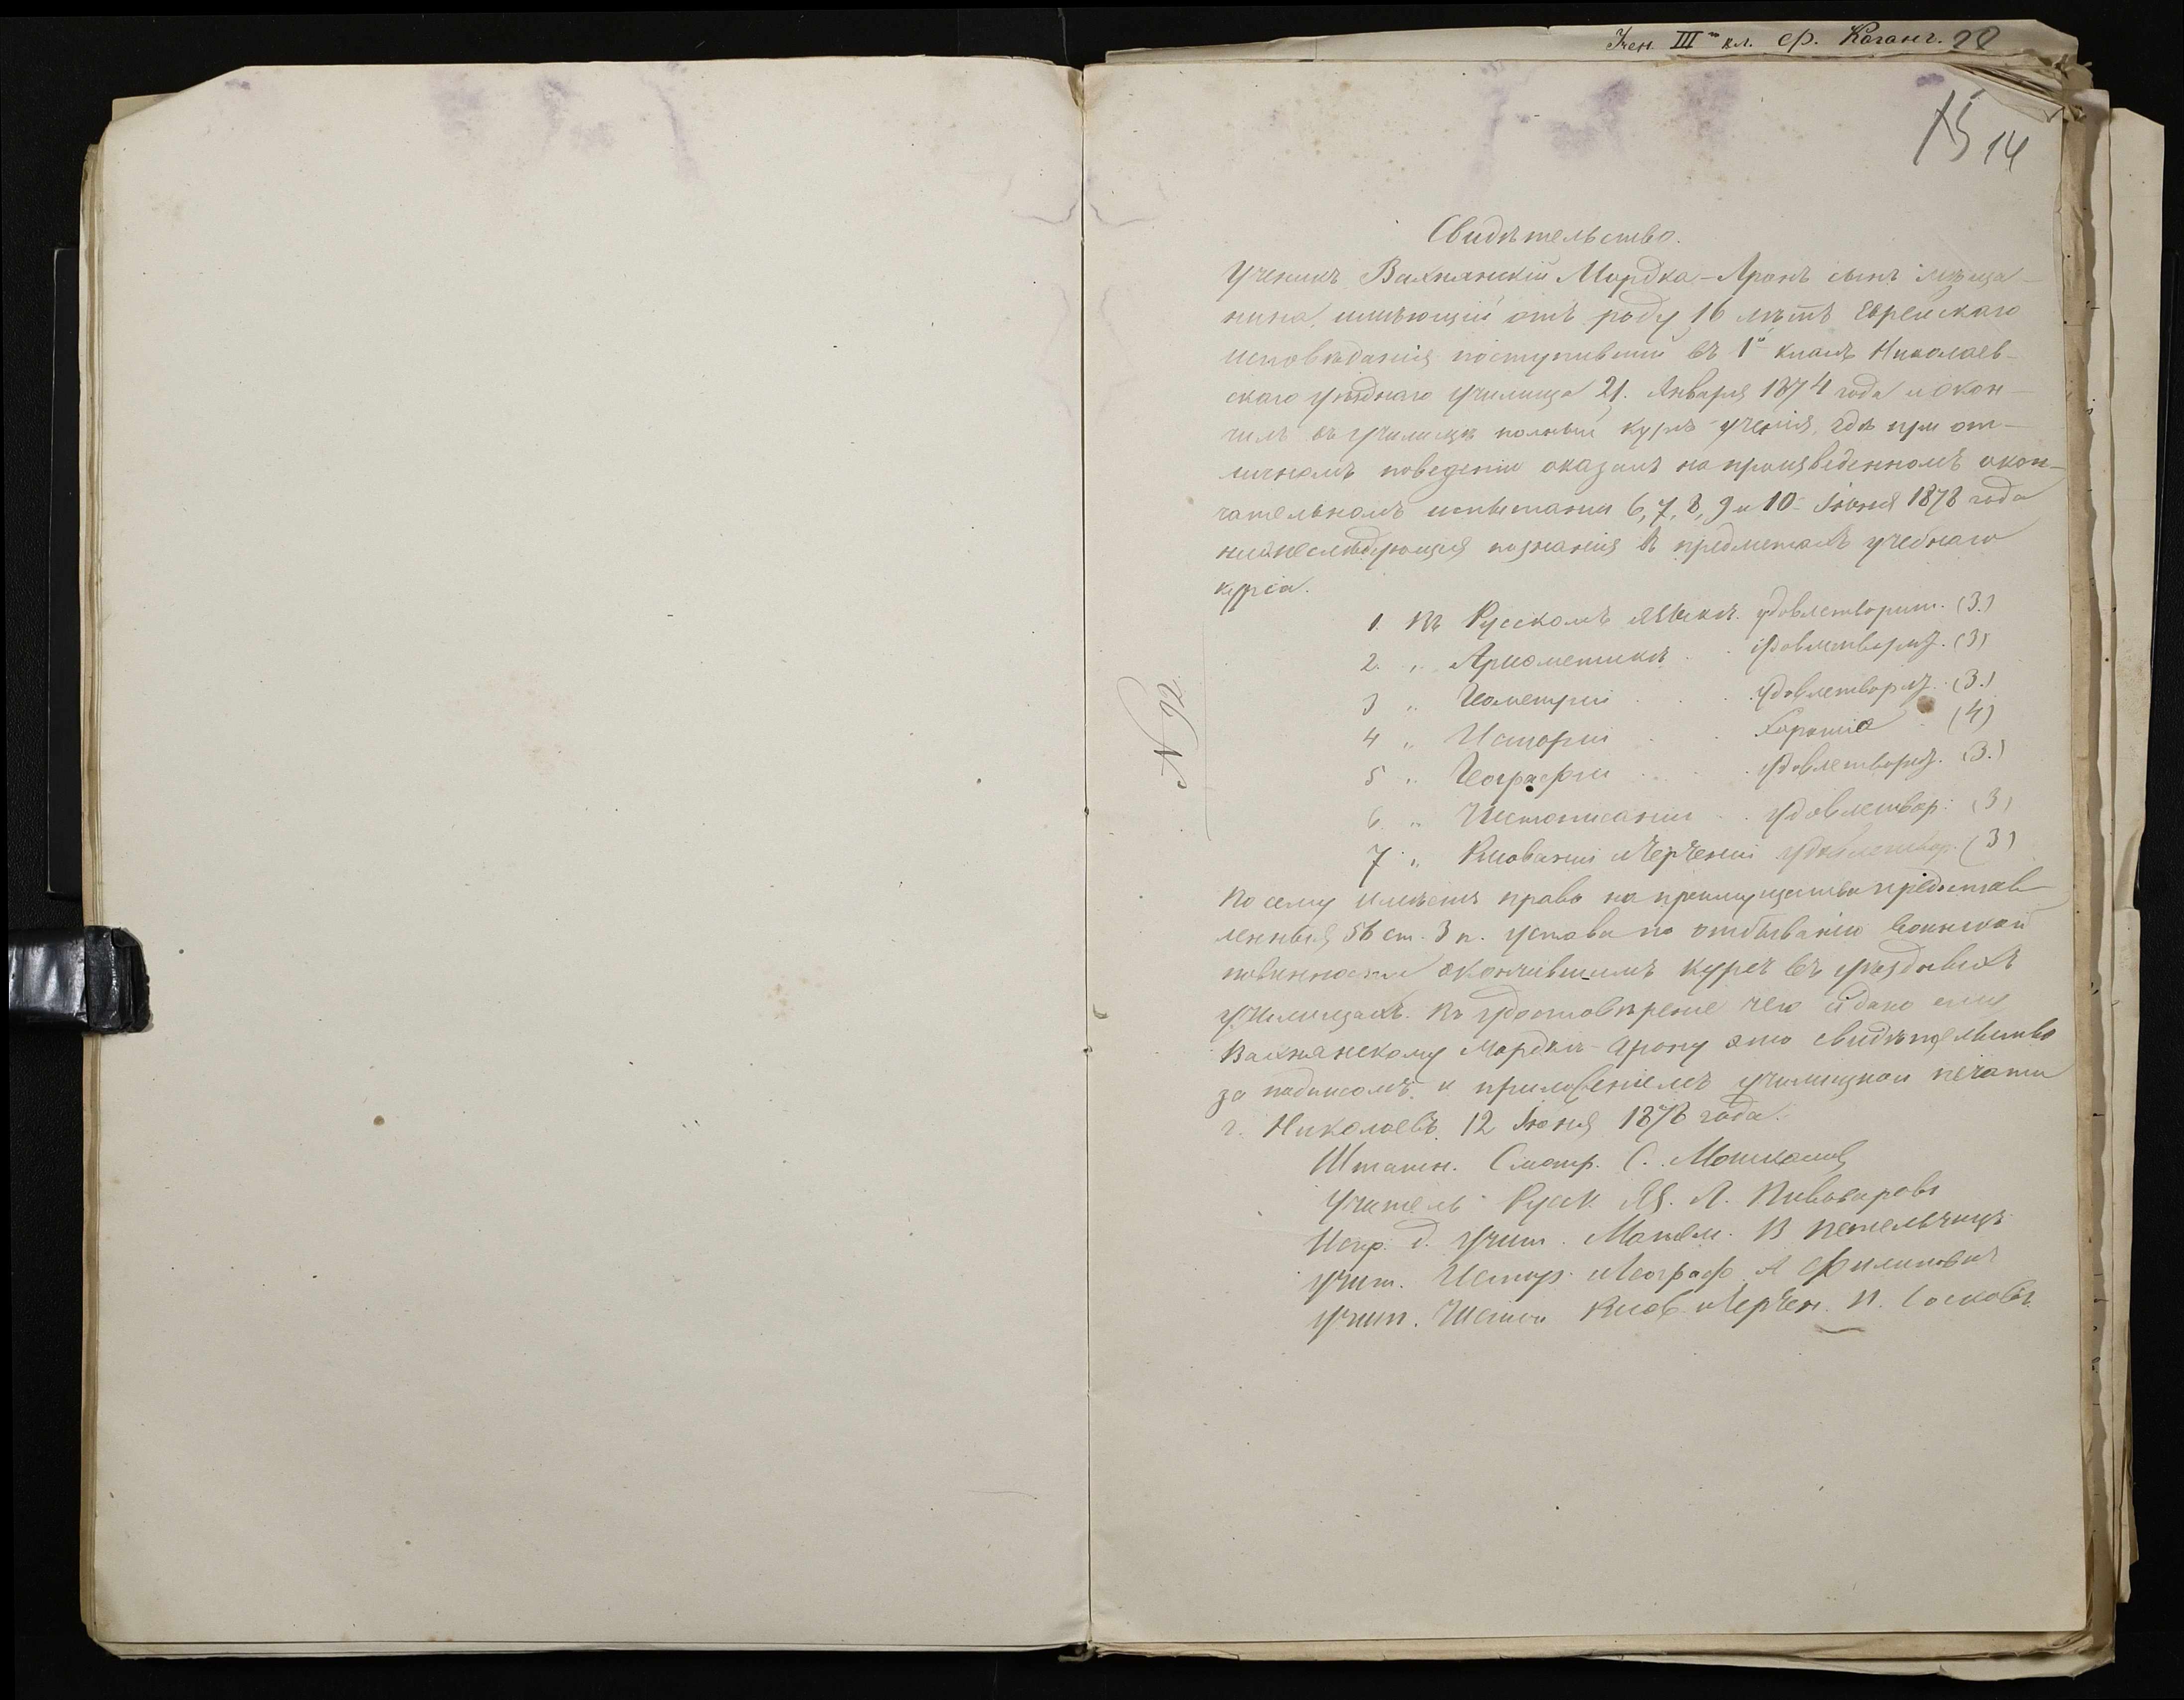 Учен. III-го кл. Ф. Коганъ. 20
15 14
Свидѣтельство.
Ученикъ Вахнянскій Мордка-Аронъ сынъ мѣща-
нина, имѣющій отъ роду 16 лѣтъ Еврейскаго
исповѣданія поступившій въ 1й классъ Николаев-
скаго уѣзднаго училища 21. Января 1874 года и окон-
чилъ въ училищѣ полный курсъ ученія, гдѣ при от-
личномъ поведеніи оказалъ на произведенномъ окон-
чательномъ испытаніи 6, 7, 8, 9 и 10 Іюня 1878 года
нижеслѣдующія познанія въ предметахъ учебнаго
курса.
1. Въ Русскомъ языкѣ. удовлетворит. (3.)
2. „ Ариѳметикѣ . . удовлетворит. (3)
3 „ Геометріи . . . удовлетворит. (3.)
4 „ Исторіи . . хорошія (4)
5 „ Географіи . . . удовлетворит. (3.)
6. „ Чистописаніи . . удовлетвор. (3)
7 „ Рисованіи и Черченіи удовлетвор. (3)
По сему имѣетъ право на преимущества предостав-
ленныя 56 ст. 3 п. устава по отбыванію воинской
повинности окончившимъ курсъ въ уѣздныхъ
училищахъ. Въ удостовѣреніе чего и дано ему
Вахнянскому Мордкѣ-Арону это свидѣтельство
за подписомъ и приложеніемъ училищной печати
г. Николаевъ. 12 Іюня 1878 года.
Штатн. Смотр. С.
Учитель Русск. Яз. А. Пивоваровъ
Испр. д. Учит. Матем. В
Учит. Истор. и Географ. А Филиповичъ
Учит. Чистоп. Рисов. и Черчен. П. Сосковъ
N 92